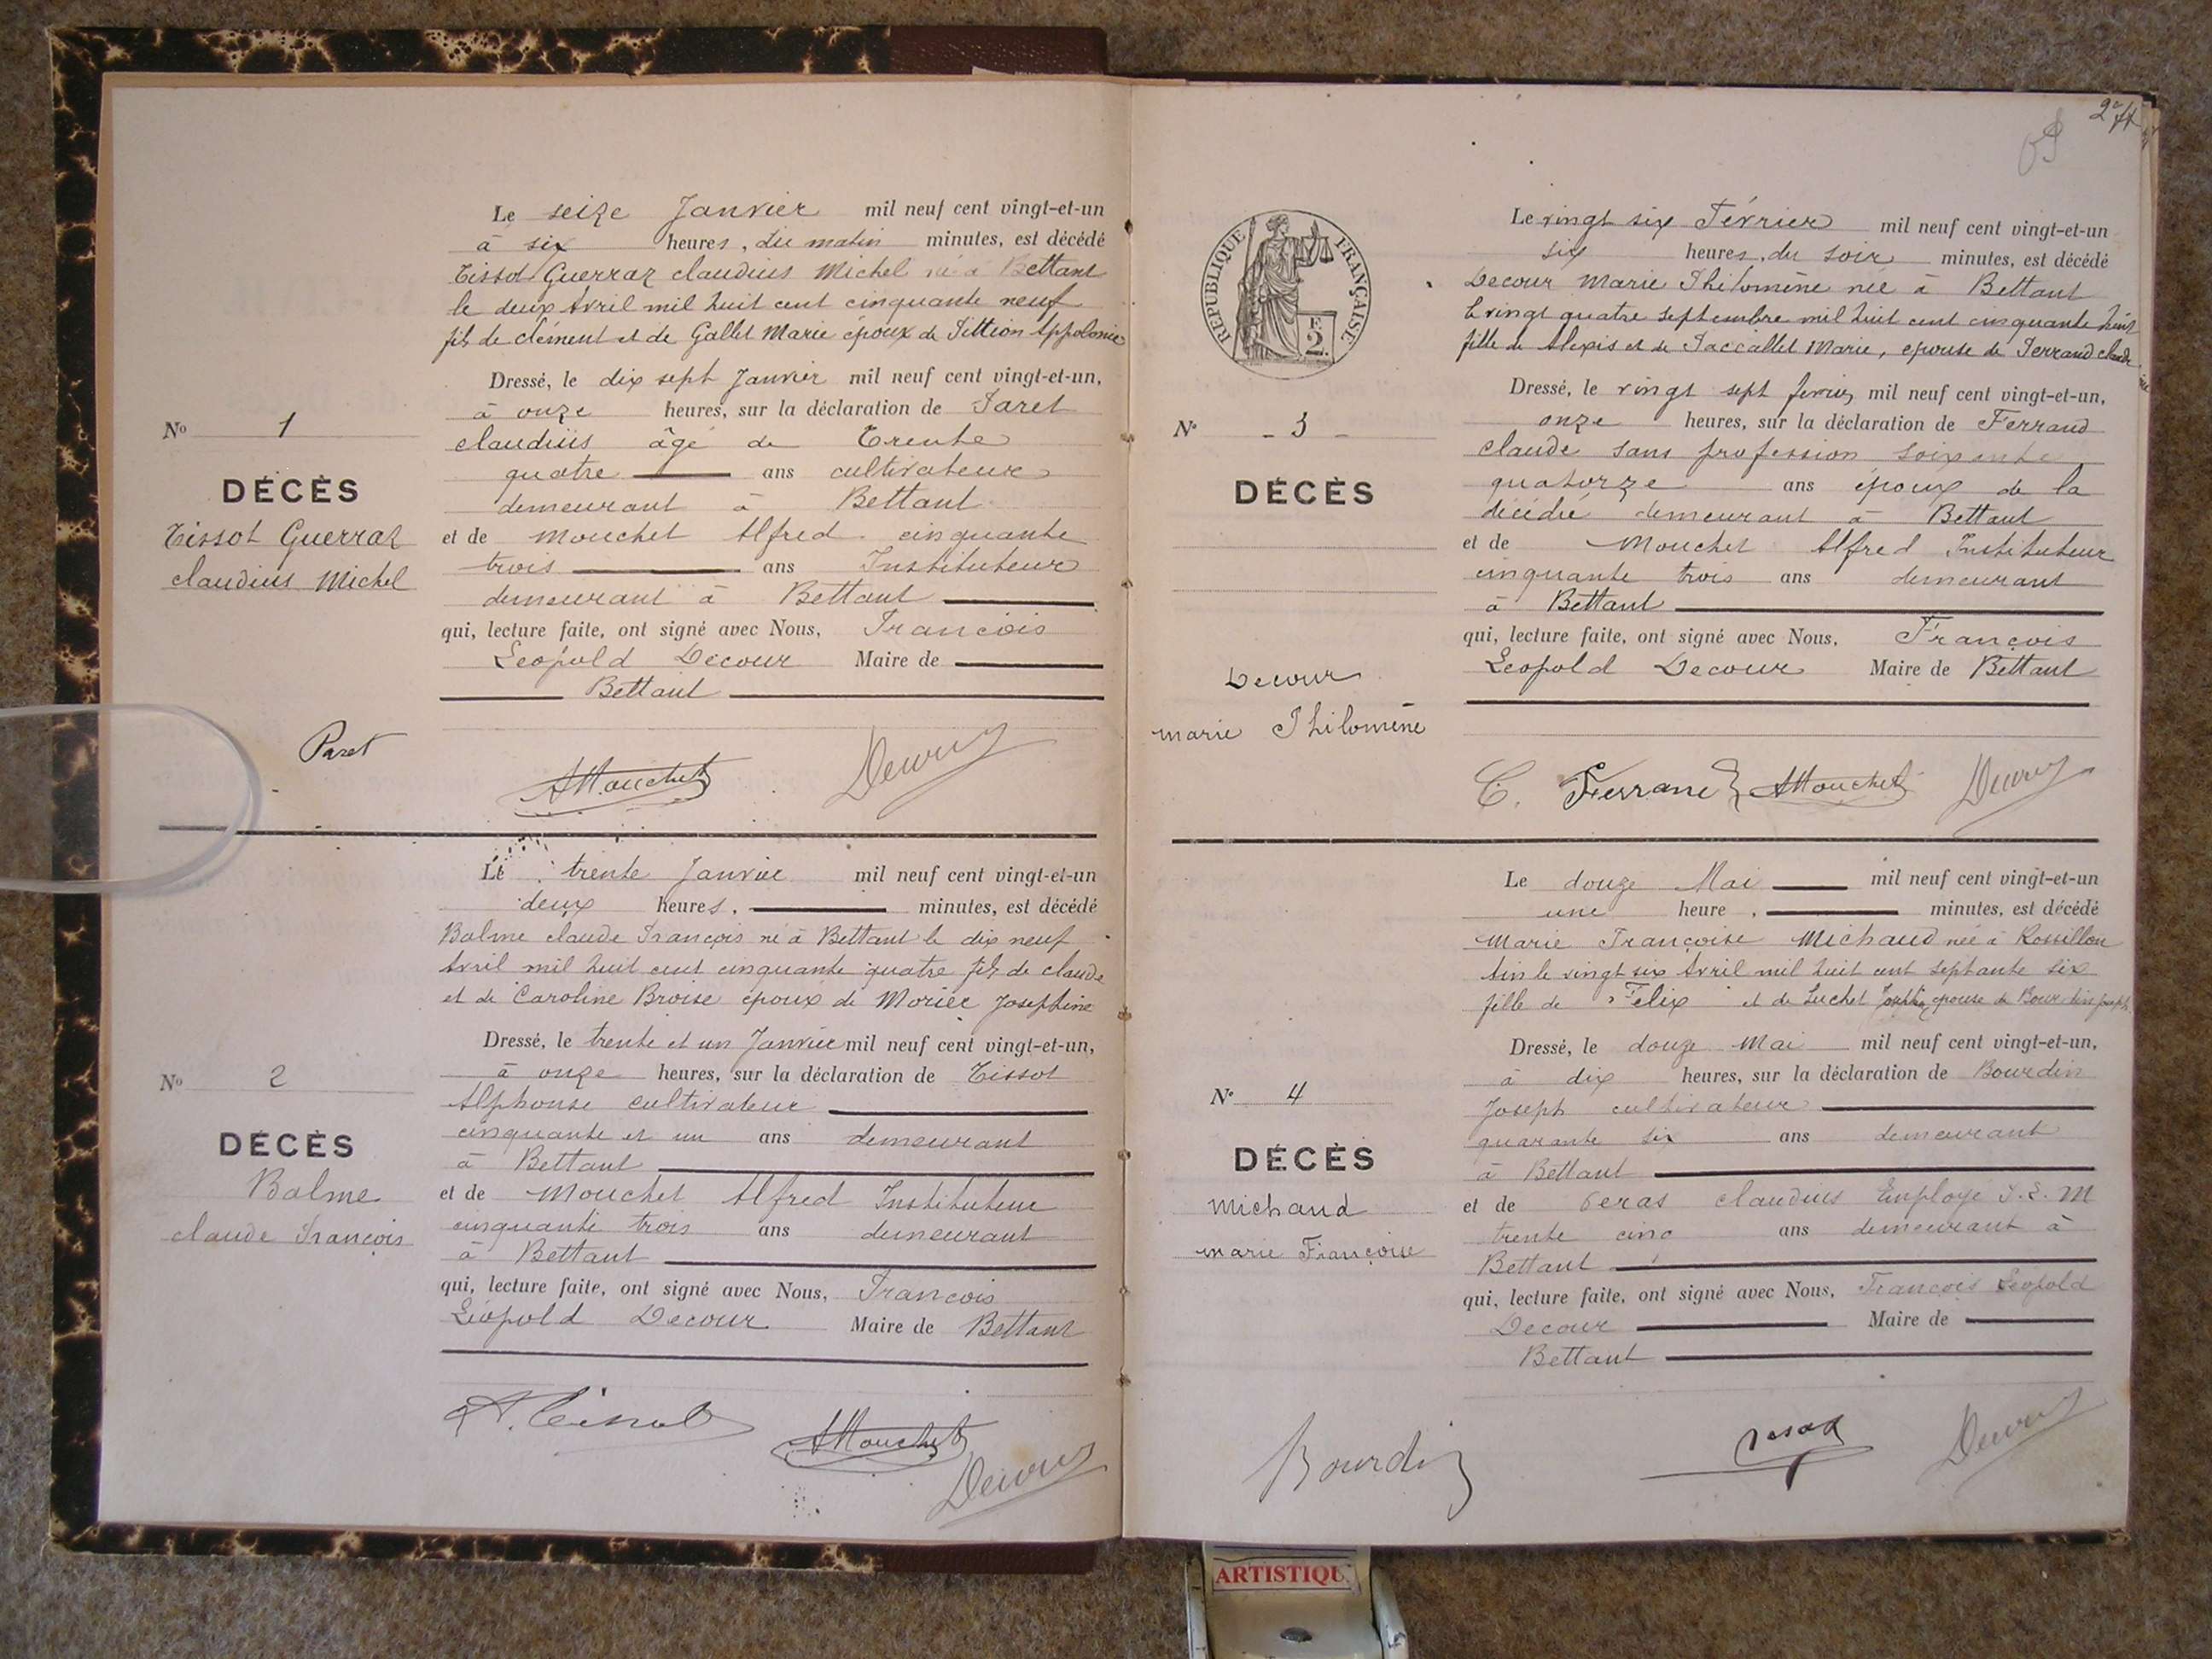 Le seize Janvier mil neuf cent vingt-et-un
à six heures, du matin minutes, est décédé
Tissot Guerraz claudius Michel né à Bettant
le deux Avril mil huit cent cinquante neuf
fils de clément et de Gallet Marie époux de Pittion Appolonie
Dressé, le dix sept Janvier mil neuf cent vingt-et-un,
à onze heures, sur la déclaration de Paret
claudius âgé de Trente
quatre ans cultivateur
demeurant à Bettant
et de Mouchet Alfred cinquante
trois ans Instituteur
demeurant à Bettant
qui, lecture faite, ont signé avec Nous, François
Léopold Decour Maire de
Bettant
No 1
DÉCÈS
Tissot Guerraz
claudius Michel
Paret
AMouchet
Decour
Le trente Janvier mil neuf cent vingt-et-un
deux heures, minutes, est décédé
Balme claude François né à Bettant le dix neuf
Avril mil huit cent cinquante quatre fils de claude
et de Caroline Broise époux de Morier Joséphine
Dressé, le trente et un Janvier mil neuf cent vingt-et-un,
à onze heures, sur la déclaration de Tissot
Alphonse cultivateur
cinquante et un ans demeurant
à Bettant
et de Mouchet Alfred Instituteur
cinquante trois ans demeurant
à Bettant
qui, lecture faite, ont signé avec Nous, François
Léopold Decour Maire de Bettant
No 2
DÉCÈS
Balme
claude François
A. Tissot
AMouchet
Decour
2
RÉPUBLIQUE FRANÇAISE
2 F.
Le vingt six Février mil neuf cent vingt-et-un
six heures, du soir minutes, est décédé
Decour Marie Philomène née à Bettant
le vingt quatre septembre mil huit cent cinquante huit
fille de Alexis et de Paccallet Marie, épouse de Ferrand claude
Dressé, le vingt sept février mil neuf cent vingt-et-un,
onze heures, sur la déclaration de Ferrand
claude sans profession soixante
quatorze ans époux de la
décédée demeurant à Bettant
et de Mouchet Alfred Instituteur
cinquante trois ans demeurant
à Bettant
qui, lecture faite, ont signé avec Nous, François
Léopold Decour Maire de Bettant
No - 3 -
DÉCÈS
Decour
marie Philomène
C. Ferrand
AMouchet
Decour
Le douze Mai mil neuf cent vingt-et-un
une heure, minutes, est décédé
Marie Françoise Michaud née à Rossillon
Ain le vingt six Avril mil huit cent septante six
fille de Félix et de Luchet épouse de Bourdin Joseph
Dressé, le douze Mai mil neuf cent vingt-et-un,
à dix heures, sur la déclaration de Bourdin
Joseph cultivateur
quarante six ans demeurant
à Bettant
et de claudius Employé P.L.M
trente cinq ans demeurant à
Bettant
qui, lecture faite, ont signé avec Nous, François Léopold
Decour Maire de
Bettant
No 4
DÉCÈS
Michaud
marie Françoise
Bourdin
Decour
ARTISTIQU